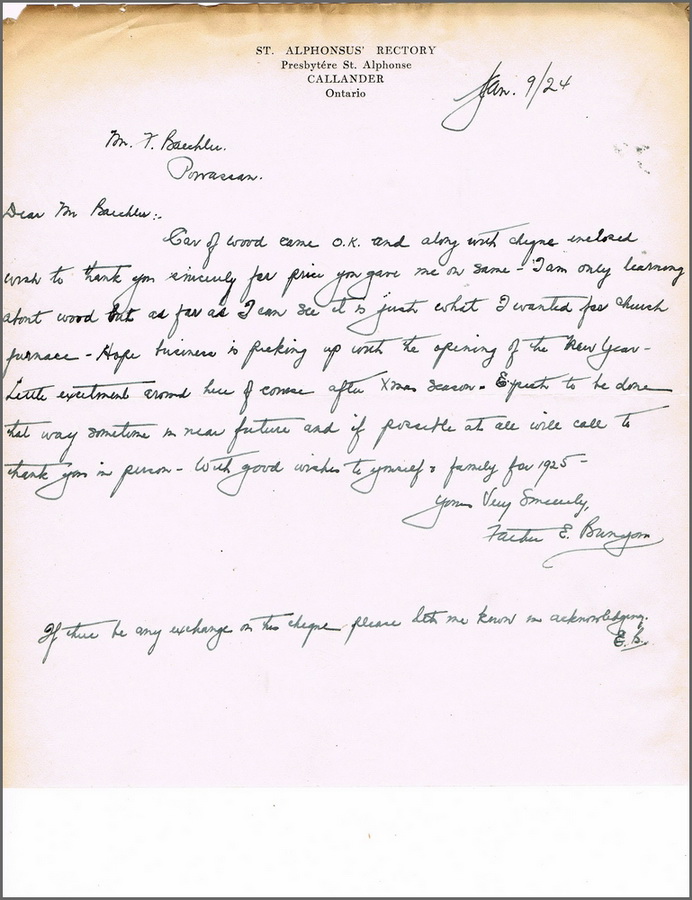 ST. ALPHONSUS' RECTORY
Presbytére St. Alphonse
CALLANDER
Ontario
Jan. 9/24
Mr. F. Baechler.
Powassan.
Dear Mr Baechler:-
Car of wood came O.K. and along with cheque enclosed
wish to thank you sincerely for price you gave me on same - I am only learning
about wood but as far as I can see it is just what I wanted for church
furnace - Hope business is picking up with the opening of the New Year -
Little excitement around here of course after Xmas season. Expect to be done
that way sometime in near future and if possible at all will call to
thank you in person - With good wishes to yourself & family for 1925 -
Yours Very Sincerely,
Father E. Bunyon
If there be any exchange on this cheque please let me know in acknowledging.
E.B.